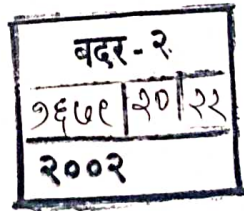 बदर - २
१६७९ | २० | २२
२००२